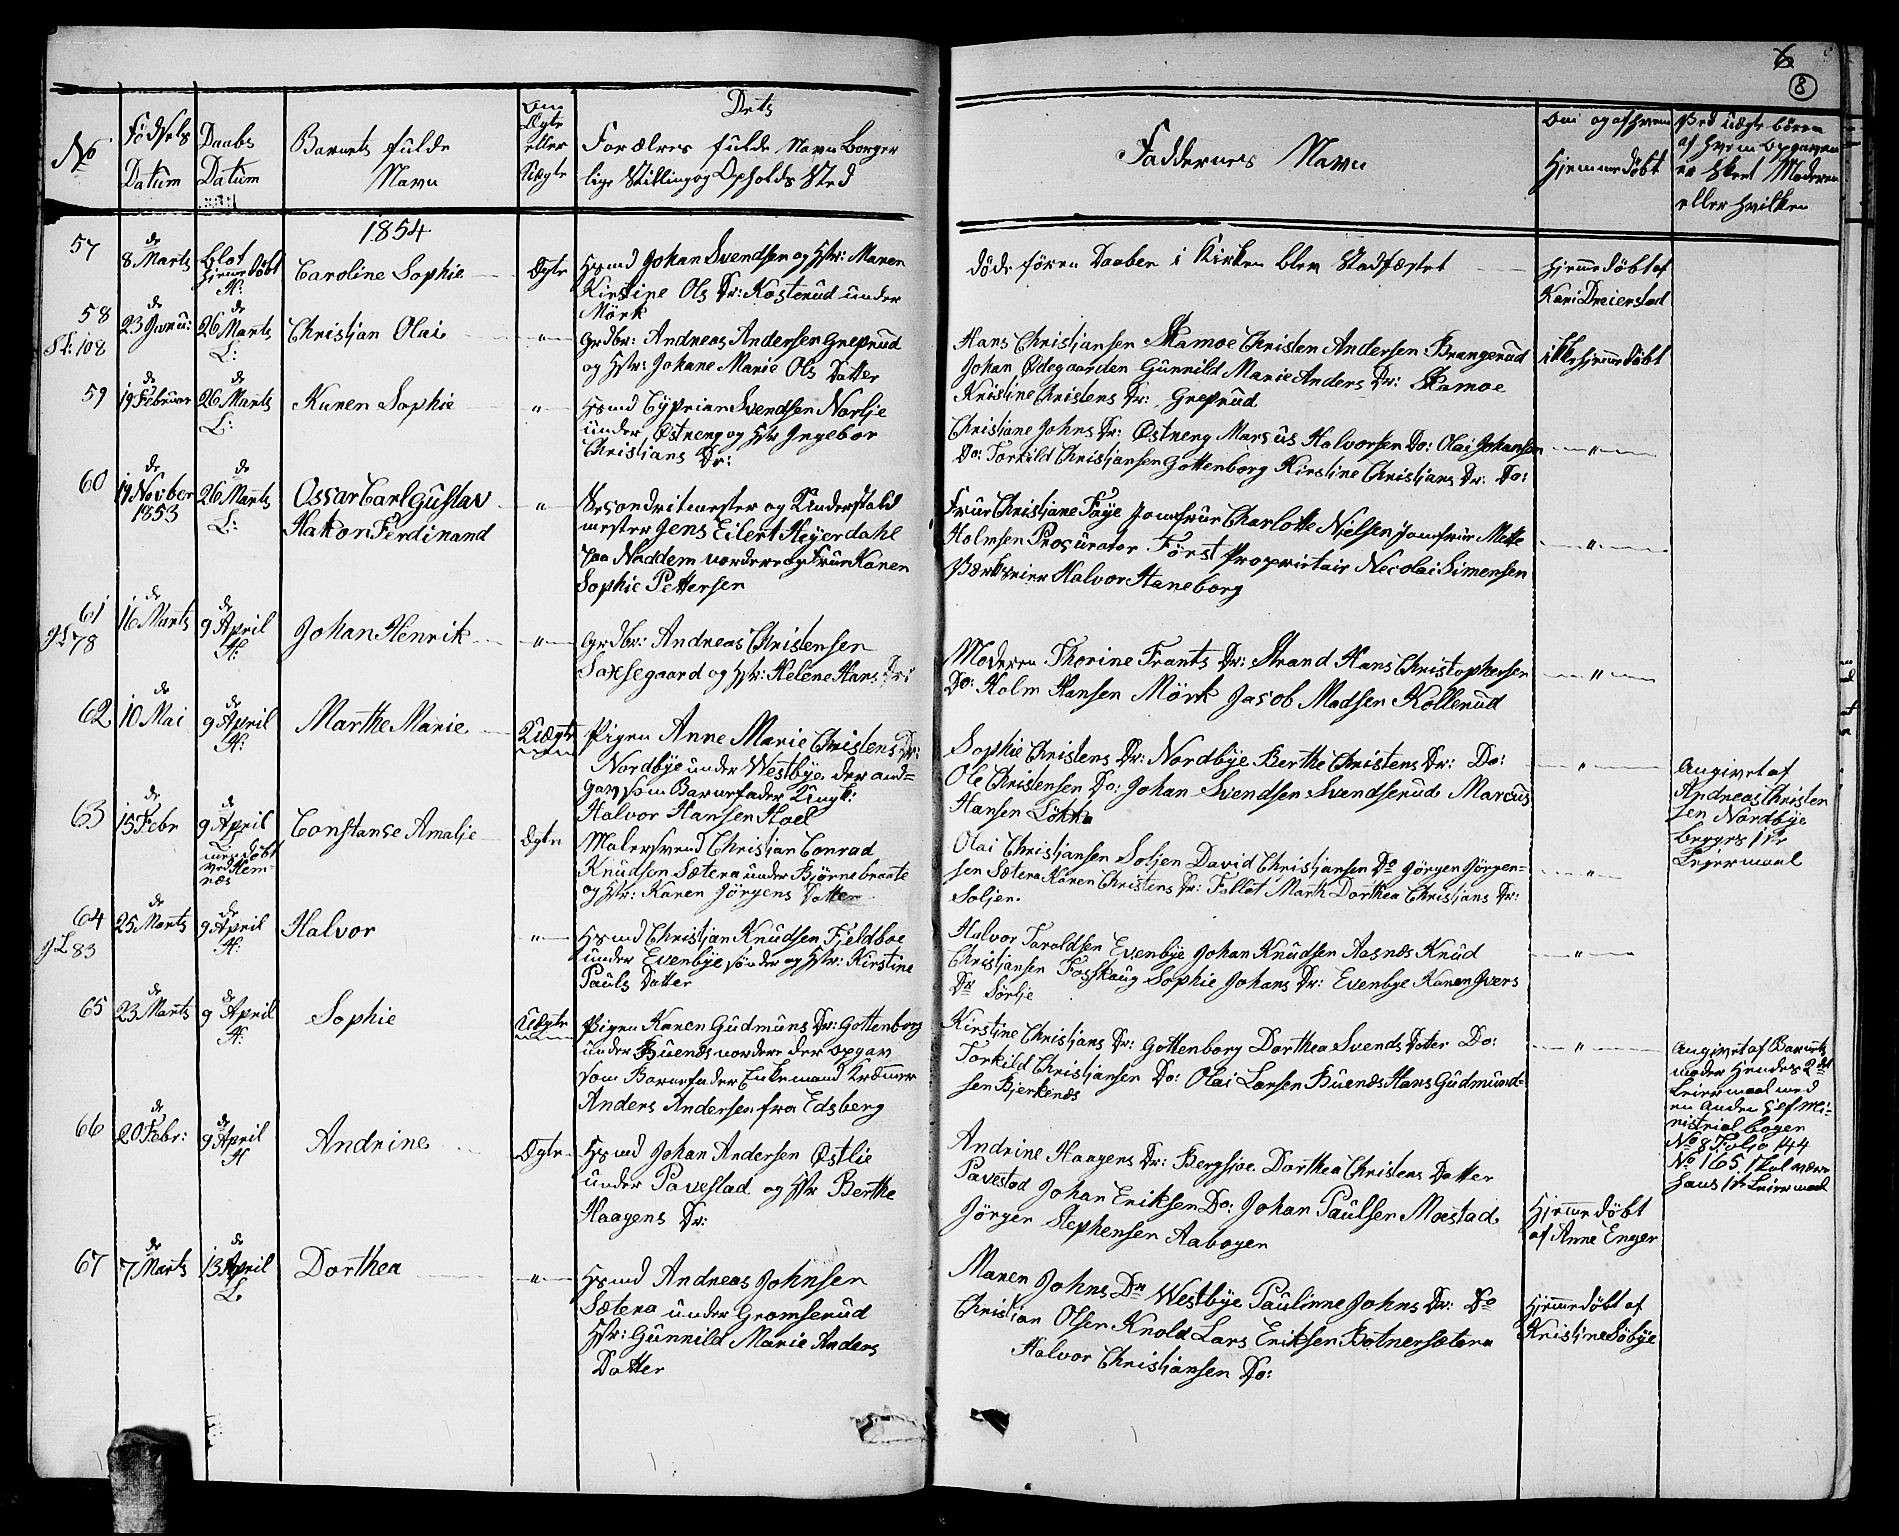 6
8
No
Fødsels
Datum
Daabs
Datum
Barnets fulde
Navn
Om
Ægte
eller
Uægte
Dets
Forælres fulde Navn Borger
lige Stilling og Opholds Sted
Faddernes Navn
Om og af hvem
Hjemmedøbt
Ved uægte børn
af hvem Opgaven
er skeet Moderen
eller hvilken
1854
57
de
8 Marts
blot
hjemmedøbt
H:
Caroline Sophie
Ægte
Hsmd Johan Svendsen og Hstr: Maren
Kirstine Ols Dr: Kosterud under
Mörk
døde førend Daaben i Kirken blev Stadfæstet
Hjemmedöbt af
Kari Dreierstad
58
St: 108
de
23 Janu:
de
26 Marts
L:
Christjan Olai
"
Grdbr: Andreas Andersen Greprud
og Hstr: Johane Marie Ols Datter
Hans Christjansen Skamoe Christen Andersen Brangerud
Johan Ødegaarden Gunnild Marie Anders Dr: Skamoe
Kristine Christens Dr: Greprud
ikke hjemmedöbt
59
de
19 Februar
de
26 Marts
L:
Karen Sophie
"
Hsmd Cyprian Svendsen Norlje
under Østneng og Hstr Ingebor
Christjans Dr:
Christjane Johns Dr: Østneng Marcus Halvorsen Do: Olai Johansen
Do: Torkild Christjansen Gottenborg Kirstine Christjans Dr: Do:
"
60
de
19 Novber
1853
de
26 Marts
L:
Oscar Carl Gustav
Hakon Ferdinand
"
Secondritmester og Understald
mester Jens Eilert Heyerdahl
paa Naddem nordere og Frue Karen
Sophie Pettersen
Frue Christjane Faye Jomfrue Charlotte Nielsen Jomfrue Mette
Holmsen Procurator Först Proprietair Necolai Simensen
Værkseier Halvor Haneborg
"
61
gL 78
de
16 Marts
de
9 April
H:
Johan Henrik
"
Grdbr: Andreas Christensen
Saxsegaard og Hstr: Helene Hans Dr:
Moderen Thorine Frants Dr: Strand Hans Christophersen
Do: Holm Hansen Mörk Jacob Madsen Kollerud
"
62
de
10 Mai
de
9 April
H:
Marthe Marie
Uægte
Pigen Anne Marie Christens Dr:
Nordbye under Westbye der and=
gav som Barnefader Ungk:
Halvor Hansen Hoel
Sophie Christens Dr: Nordbye Berthe Christens Dr: Do:
Ole Christensen Do: Johan Svendsen Svendserud Marcus
Hansen Lökka
"
Angivet af
Andreas Christen
sen Nordbye
begges 1ste
Leiermaal
63
de
15 Febr
de
9 April
L:
döbt
ved Hem=
næs
Constanse Amalje
Ægte
Malersvend Christjan Conrad
Knudsen Sætera under Bjørnebraate
og Hstr: Karen Jörgens Datter
Olai Christjansen Soljen David Christjansen Do Jörgen Jörgen=
sen Sætera Karen Christens Dr: Follöt Mark Dorthea Christjans Dr:
Soljen.
"
64
gL 83
de
25 Marts
de
9 April
H:
Halvor
"
Hsmd Christjan Knudsen Fjeldboe
under Evenbye søndre og Hstr: Kirstine
Pauls Datter
Halvor Taroldsen Evenbye Johan Knudsen Aasnæs Knud
Christjansen Fosshaug Sophie Johans Dr: Evenbye Karen Ivers
Dr Sörlje
"
65
de
23 Marts
de
9 April
H:
Sophie
Uægte
Pigen Karen Gudmuns Dr: Gottenborg
under Buenæs nordere der opgav
som Barnefader Enkemand Kræmmer
Anders Andersen fra Edsberg
Kirstine Christjans Dr: Gottenborg Dorthea Svends Datter Do:
Torkild Christjansen Do: Olai Larsen Buenæs Hans Gudmund=
sen Bjerkenæs
"
Angivet af Barnets
moder hendes 2det
Leiermaal med
en Anden Cef Mi=
nistrial bogen
No 8 Folio 144
No 165. skal være
hans 1ste Leiermaal
66
de
20 Febr:
de
9 April
H
Andrine
Ægte
Hsmd Johan Andersen Østlie
under Pavestad og Hstr Berthe
Haagens Dr:
Andrine Haagens Dr: Bergsjoe Dorthea Christens Datter
Pavestad Johan Eriksen Do: Johan Paulsen Moestad
Jörgen Stephensen Aabogen
Hjemmedöbt
af Anne Enger
67
de
7 Marts
de
13 April
L.
Dorthea
"
Hsmd Andreas Johnsen
Sætera under Gromserud
Hstr: Gunnild Marie Anders
Datter
Maren Johns Dr Westbye Paulinne Johns Dr: Do
Christian Olsen Knold Lars Eriksen Botnersætera
Halvor Christjansen Do:
Hjemmedöbt af
Kristine Søbye